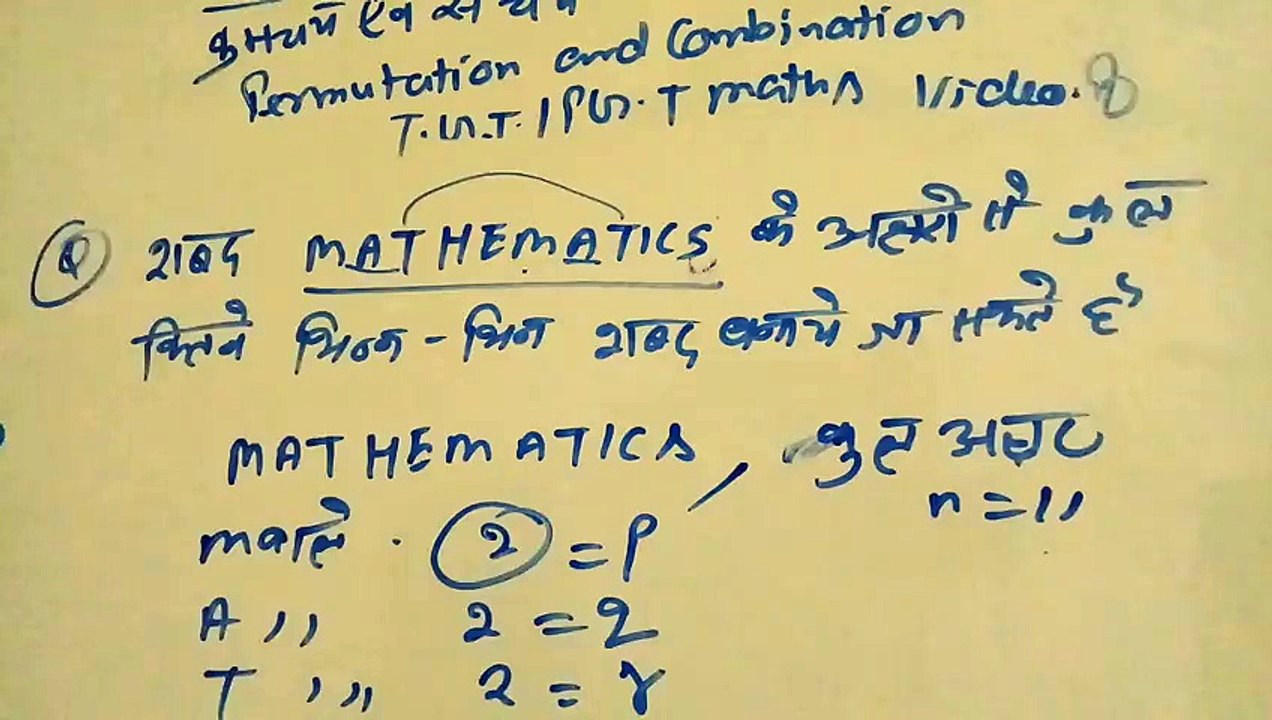 क्रमचय एवं संचय
Permutation and Combination
T.G.T. / P.G.T maths Video.
Q शब्द MATHEMATICS के अक्षरों से कुल
कितने भिन्न-भिन्न शब्द बनाये जा सकते है
MATHEMATICS , कुल अक्षर
n = 11
M वाले . 2 = p
A ,, 2 = q
T ,, 2 = r